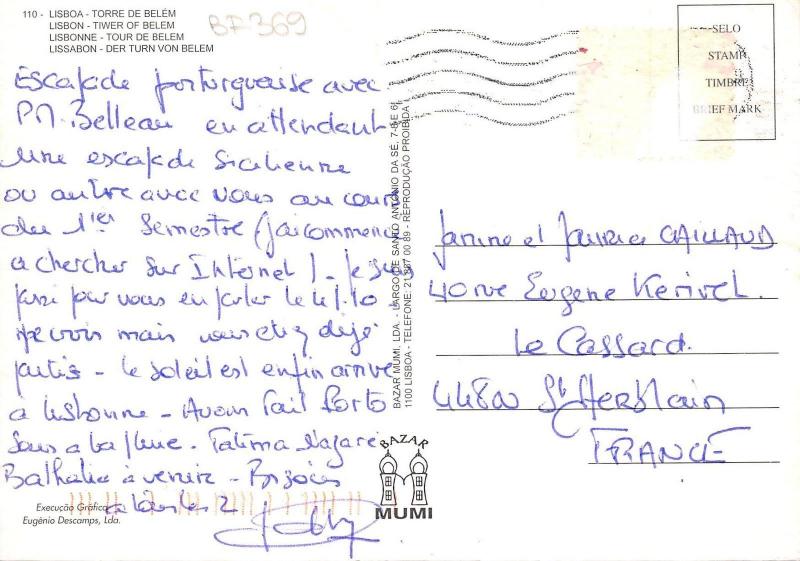 110 - LISBOA - TORRE DE BELÉM
LISBON - TIWER OF BELEM
LISBONNE - TOUR DE BELEM
LISSABON - DER TURN VON BELEM
BF 369
Escapade portuguaise avec
P.M. Belleau en attendant
une escapade sicilienne
ou autre avec vous au cours
du 1er Semestre (j'ai commencé
a chercher sur Internet). Je suis
par vous en parler le 4/10
mais vous étiez déjà
partis - Le soleil est enfin arrivé
a Lisbonne - Avons fait Porto
sous la pluie. Fatima Nazare
Bathalia à venir - Bisous
a tous les 2
SELO
STAMP
TIMBRE
BRIEF MARK
BAZAR MUMI, LDA. - LARGO DE SANTO ANTÓNIO DA SÉ, 7-8 E 6
1100 LISBOA - TELEFONE: 21 887 00 89 - REPRODUÇÃO PROIBIDA
Janine et Maurice CAILLAUD
40 rue Eugène Kerivel.
Le Cassard.
44800 St Herblain
FRANCE
BAZAR
MUMI
Execução Gráfica
Eugénio Descamps, Lda.